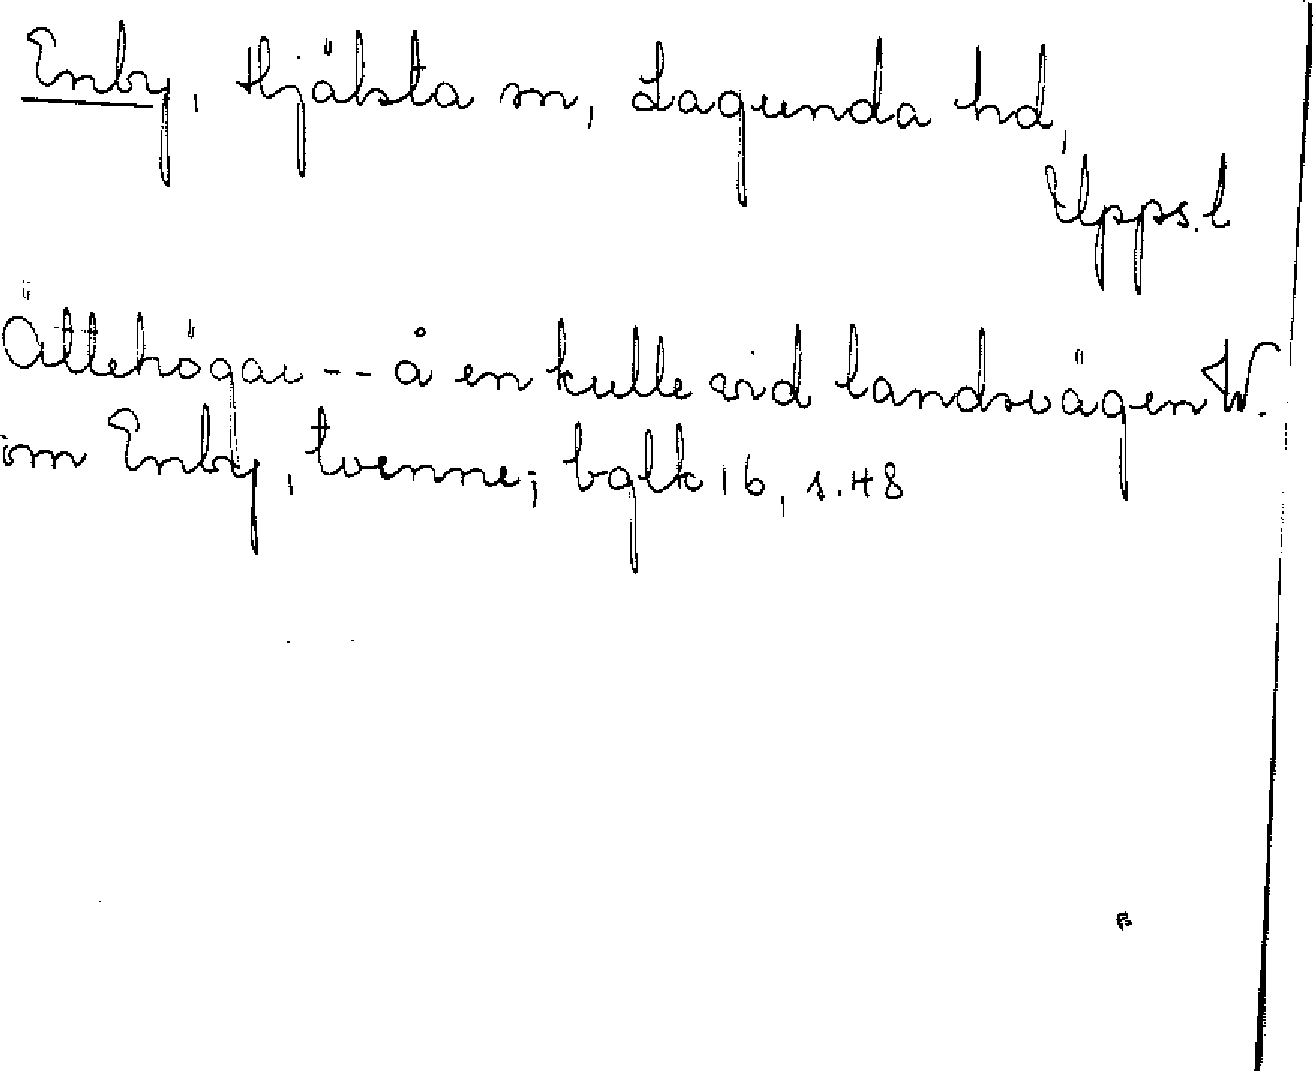 Enby, Hjälsta sn, Lagunda hd,
Upps. l
Ättehögar -- å en kulle vid landsvägen W.
om Enby, tvenne; bglk 16, s. 48